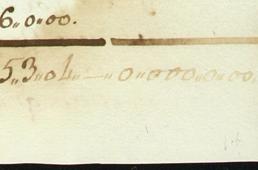 6„0„00.
5„3„04„—„0„000„0„00.